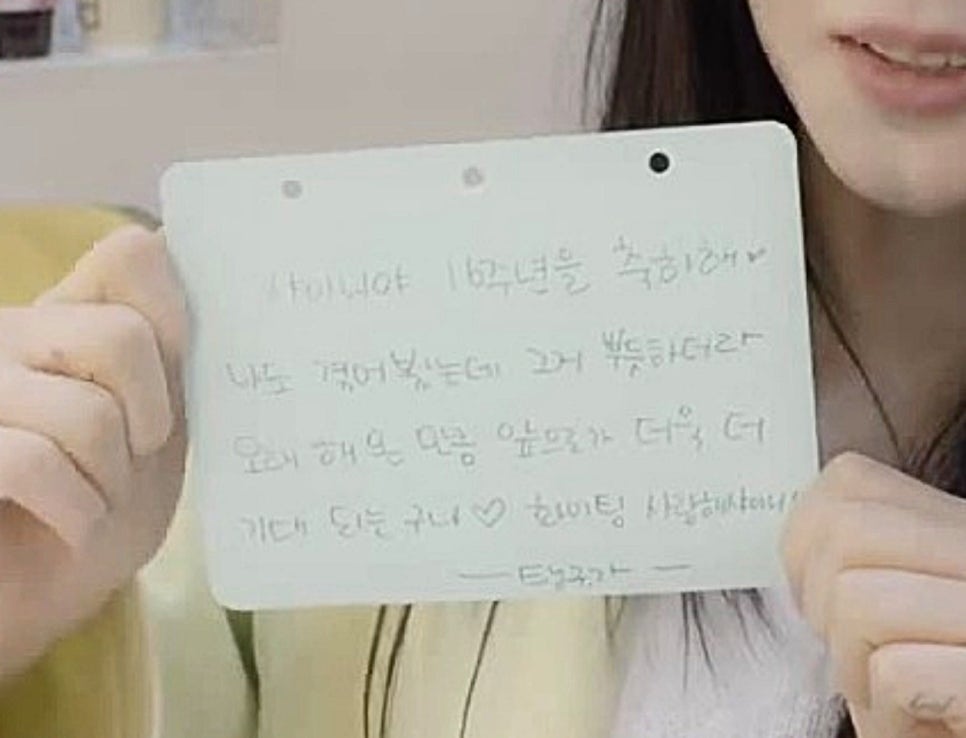 샤이니야 16주년을 축하해♥
나도 겪어봤는데 그거 뿌듯하더라
오래 해온 만큼 앞으로가 더욱 더
기대 되는구나♡ 화이팅 사랑해샤이니